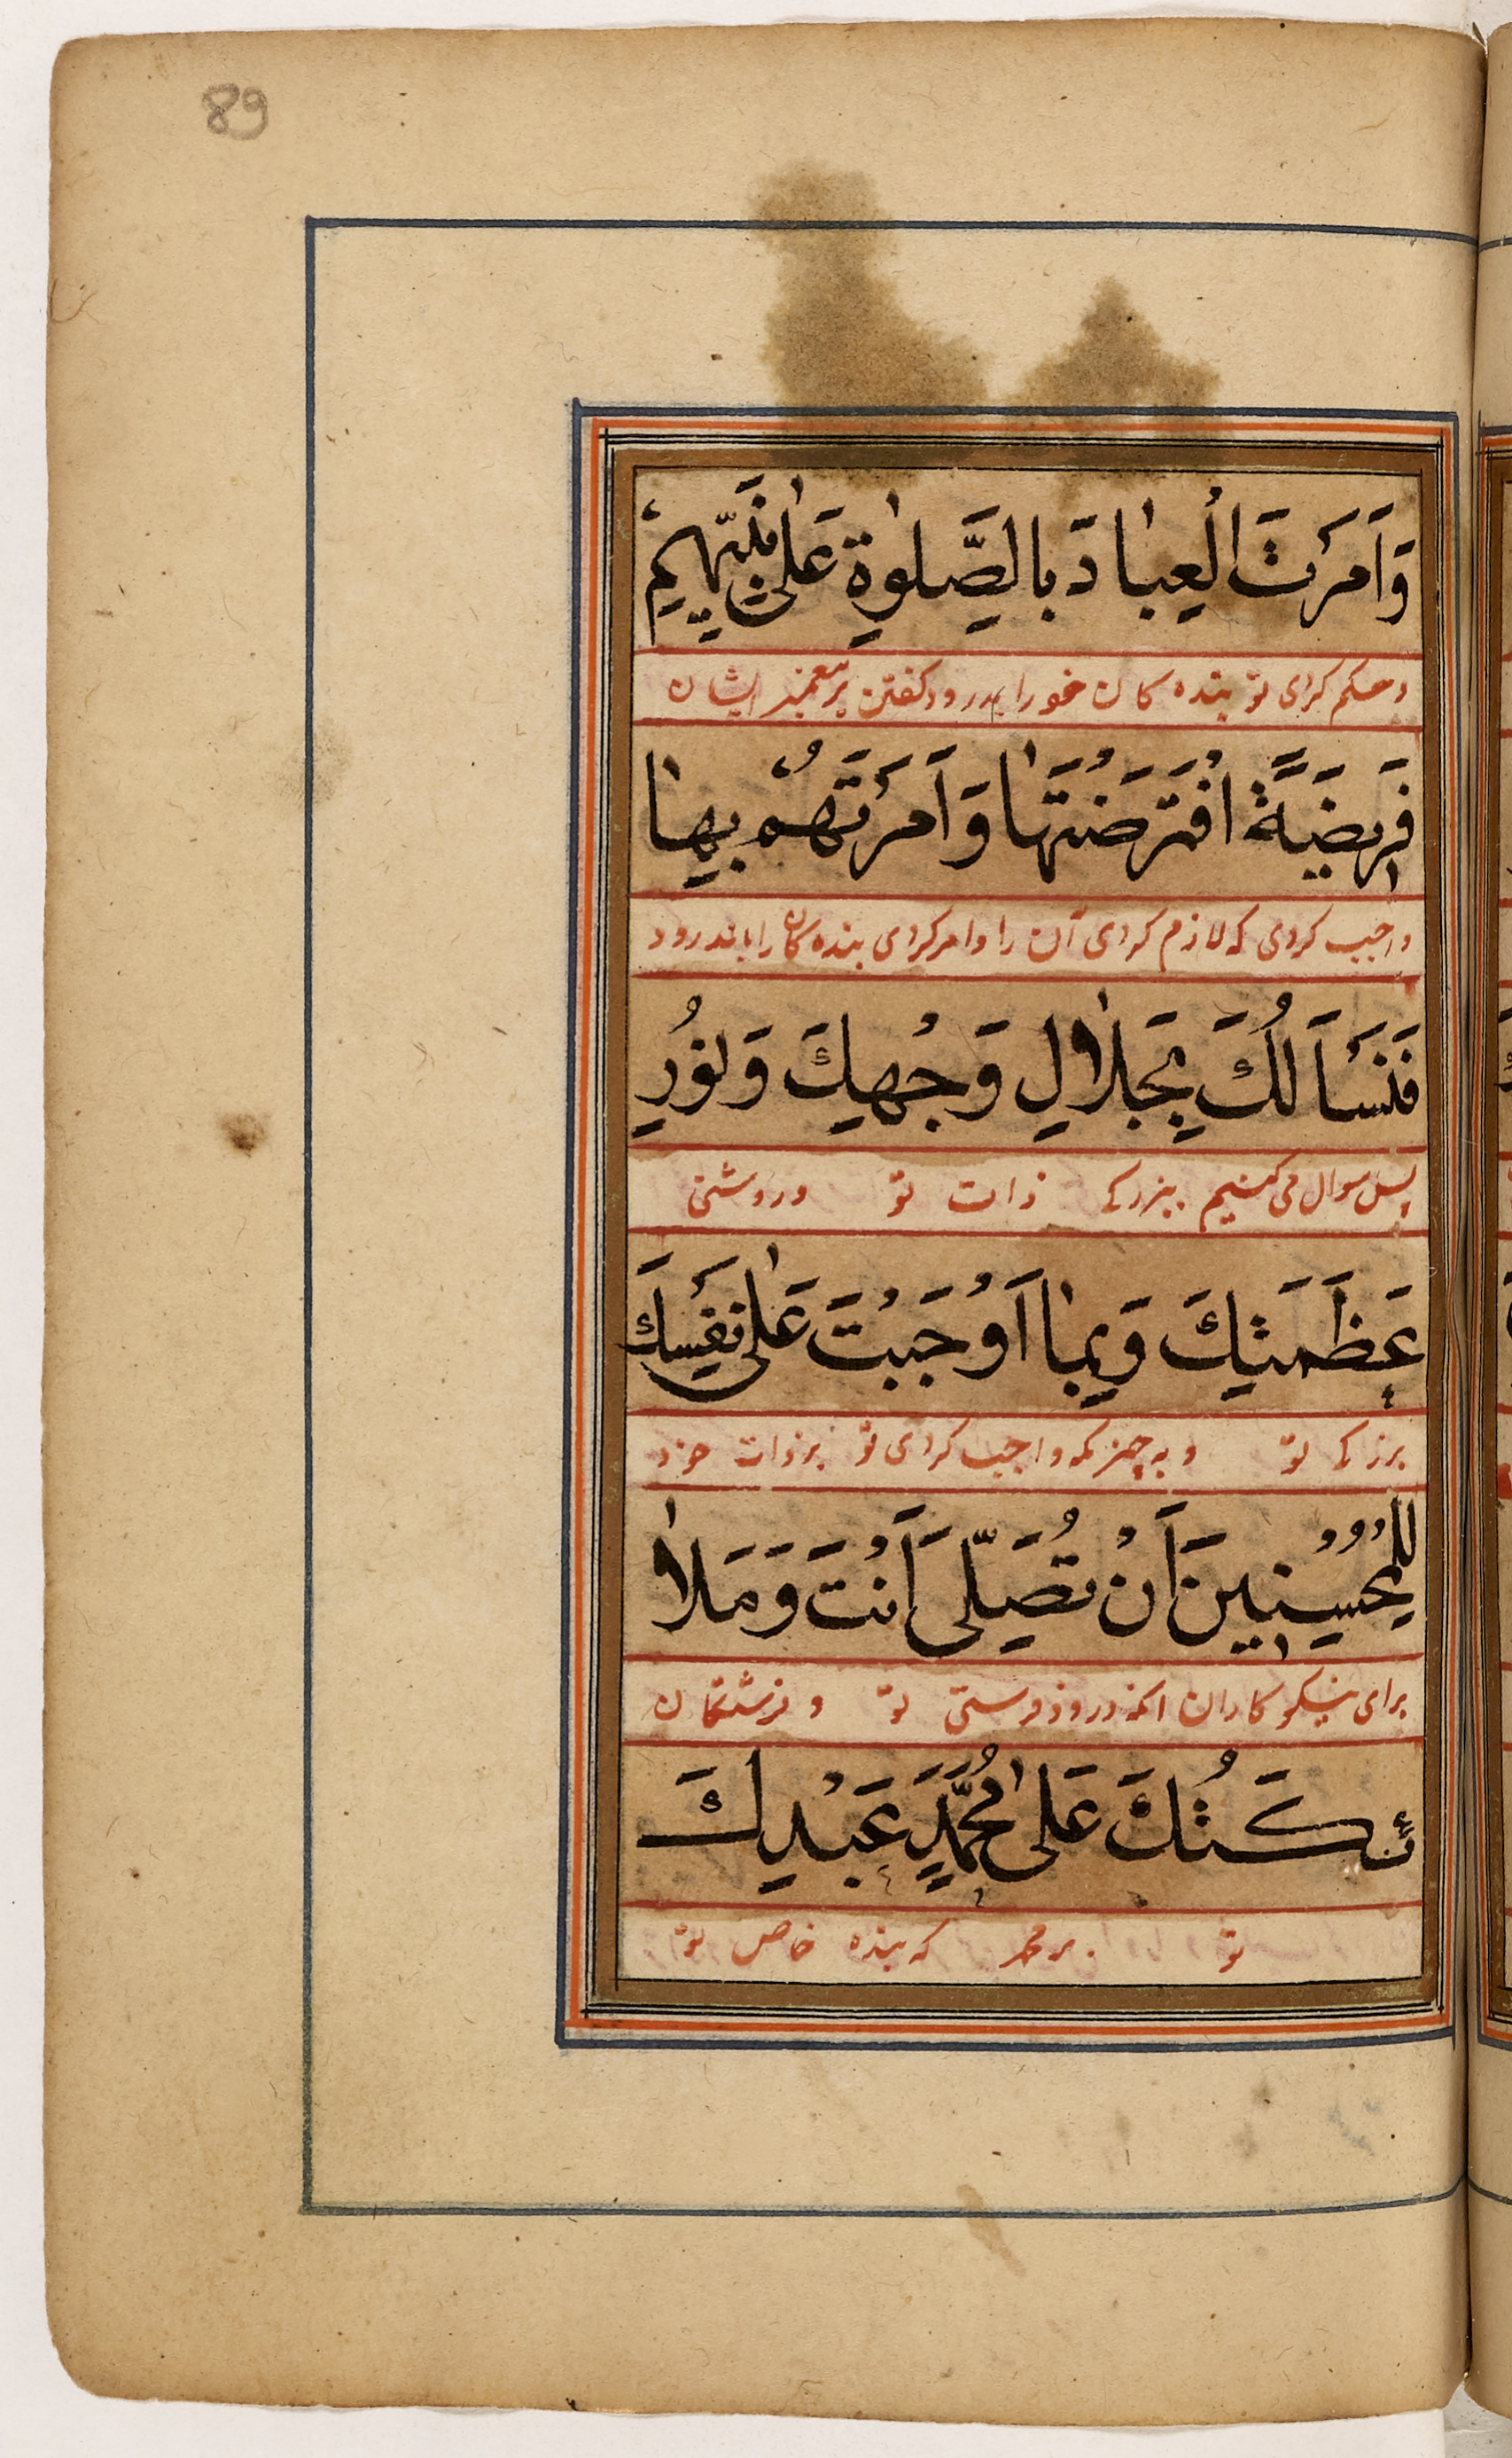 89
وَاَمَرْتَ الْعِبَادَ بِالصَّلٰوةِ عَلٰى نَبِيِّهِمْ
و حکم کردی تو بنده کان خود را بدرود گفتن بر پیغمبر ایشان
فَرِيضَةً افْتَرَضْتَهَا وَاَمَرْتَهُمْ بِهَا
واجب کردی که لازم کردی آن را و امر کردی بنده کان را باندرود
فَنَسْاَلُكَ بِجَلَالِ وَجْهِكَ وَنُورِ
پس سوال می کنیم ببزرکی ذات تو و روشنی
عَظَمَتِكَ وَبِمَا اَوْجَبْتَ عَلٰى نَفْسِكَ
بزرکی تو و به چیز که واجب کردی تو بر ذات خود
لِلْمُحْسِنِينَ اَنْ تُصَلِّىَ اَنْتَ وَمَلَا
برای نیکو کاران انکه درود فرستی تو و فرشتکان
ئِكَتُكَ عَلٰى مُحَمَّدٍ عَبْدِكَ
تو بر محمد که بنده خاص تو